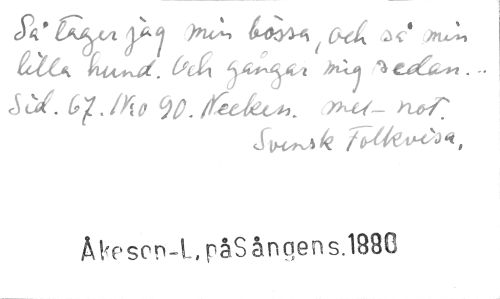 Så tager jag min bössa, och så min
lilla hund. Och gångar mig sedan...
Sid. 67. No 90. Necken. mel-not.
Svensk Folkvisa.
Åkeson-L, påSångens.1880